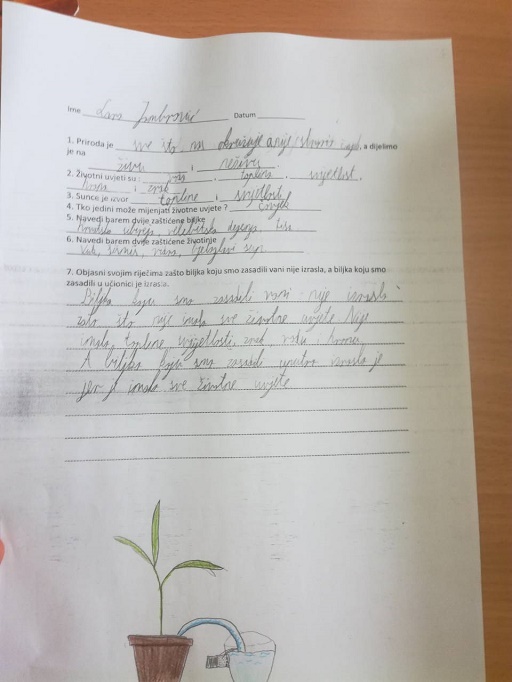 Ime Lara Jambrović Datum
1. Priroda je sve što nas okružuje a nije stvorio čovjek, a dijelimo
je na živu i neživu.
2. Životni uvjeti su: toplina, svjetlost,
hrana i zrak
3. Sunce je izvor topline i svjetlosti
4. Tko jedini može mijenjati životne uvjete? čovjek
5. Navedi barem dvije zaštićene biljke
hrvatska velebitska degenija, tisa
6. Navedi barem dvije zaštićene životinje
vuk, vidra, bjeloglavi sup
7. Objasni svojim riječima zašto biljka koju smo zasadili vani nije izrasla, a biljka koju smo
zasadili u učionici je izrasla.
Biljka koju smo zasadili vani nije izrasla
zato što nije imala sve životne uvjete. Nije
imala, topline svijetlosti, zrak, vodu, hranu.
A biljka koju smo zasadili unutra izrasla je
jer je imala sve životne uvjete